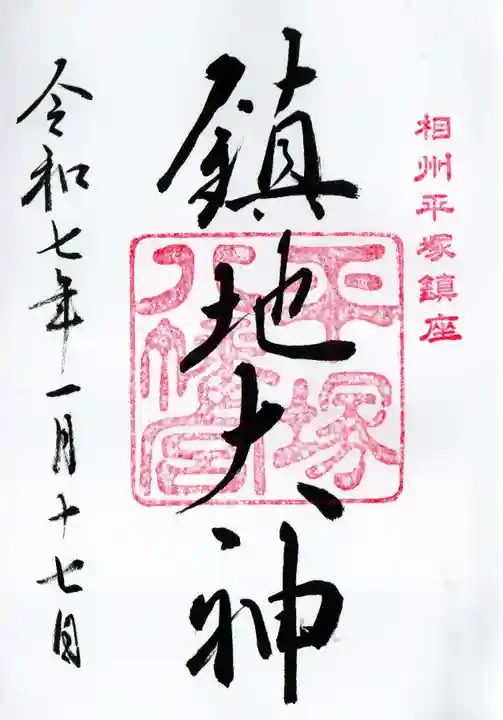 相州平塚鎮座
鎮地大神
平塚八幡宮
令和七年一月十七日